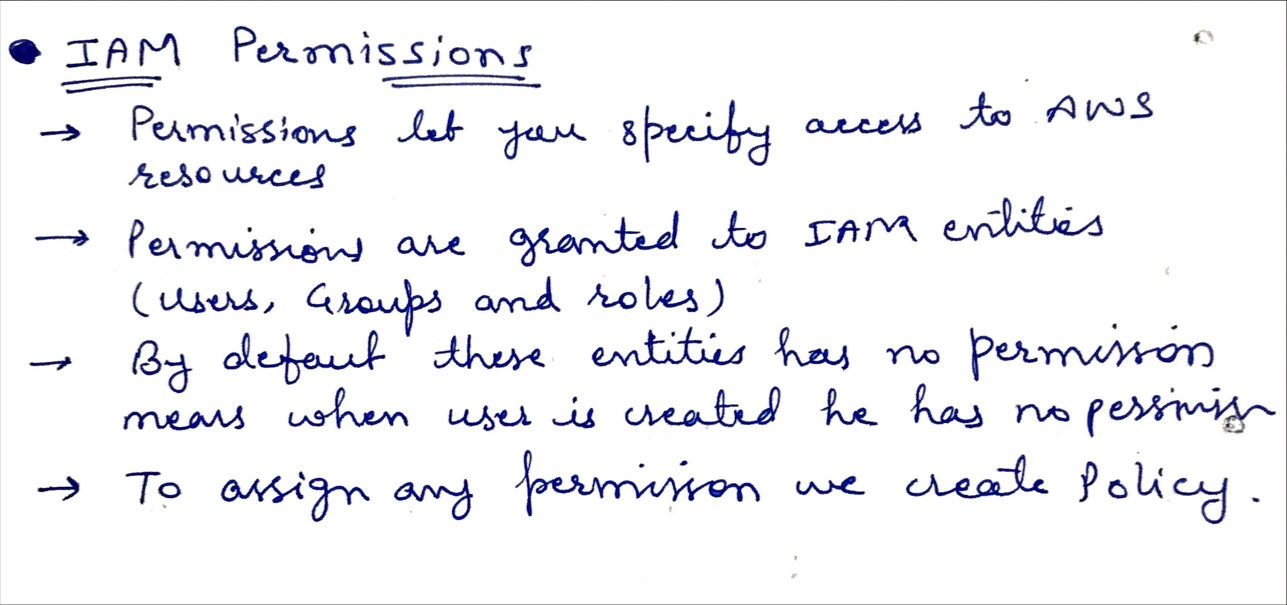 ● IAM Permissions
→ Permissions let you specify access to AWS
resources
→ Permissions are granted to IAM entities
(Users, Groups and roles)
→ By defaut these entities has no permission
means when user is created he has no
→ To assign any permission we create Policy.